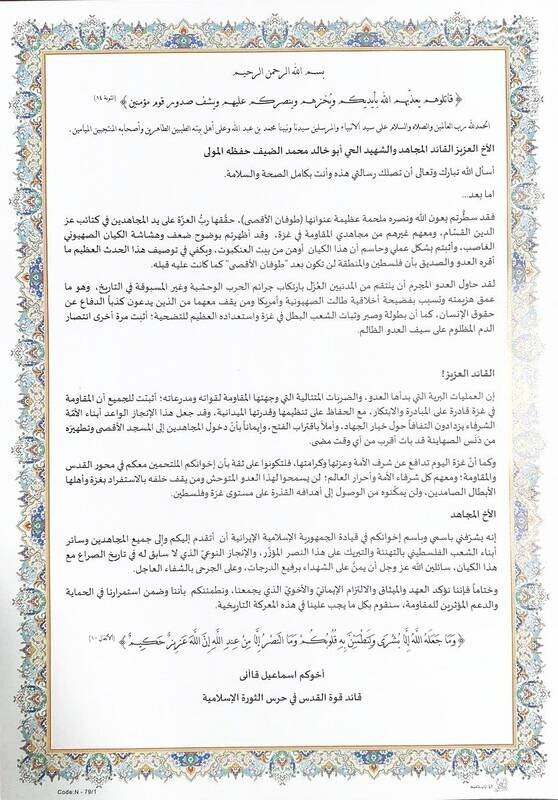 بسم الله الرحمن الرحيم
﴿ قاتلوهم يعذبهم الله بأيديكم ويخزهم وينصركم عليهم ويشف صدور قوم مؤمنين ﴾ (التوبة ١٤)
الحمدلله رب العالمين والصلاة والسلام على سيد الأنبياء والمرسلين سيدنا ونبينا محمد بن عبد الله وعلى أهل بيته الطيبين الطاهرين وأصحابه المنتجبين الميامين.
الأخ العزيز القائد المجاهد والشهيد الحي أبو خالد محمد الضيف حفظه المولى
أسأل الله تبارك وتعالى أن تصلك رسالتي هذه وأنت بكامل الصحة والسلامة.
اما بعد...
فقد سطّرتم بعون الله ونصره ملحمة عظيمة عنوانها (طوفان الأقصى)، حقّقها ربُّ العزّة على يد المجاهدين في كتائب عز
الدين القسّام، ومعهم غيرهم من مجاهدي المقاومة في غزة، وقد أظهرتم بوضوح ضعف وهشاشة الكيان الصهيوني
الغاصب، وأثبتم بشكل عملي وحاسم أن هذا الكيان أوهن من بيت العنكبوت، ويكفي في توصيف هذا الحدث العظيم ما
أقره العدو والصديق بأن فلسطين والمنطقة لن تكون بعد "طوفان الأقصى" كما كانت عليه قبله.
لقد حاول العدو المجرم أن ينتقم من المدنيين العُزّل بارتكاب جرائم الحرب الوحشية وغير المسبوقة في التاريخ، وهو ما
عمق هزيمته وتسبب بفضيحة أخلاقية طالت الصهيونية وأمريكا ومن يقف معهما من الذين يدعون كذباً الدفاع عن
حقوق الإنسان، كما أن بطولة وصبر وثبات الشعب البطل في غزة واستعداده العظيم للتضحية؛ أثبت مرة أخرى انتصار
الدم المظلوم على سيف العدو الظالم.
القائد العزيز!
إن العمليات البرية التي بدأها العدو، والضربات المتتالية التي وجهتها المقاومة لقواته ومدرعاته؛ أثبتت للجميع أن المقاومة
في غزة قادرة على المبادرة والابتكار، مع الحفاظ على تنظيمها وقدرتها الميدانية، وقد جعل هذا الإنجاز الواعد أبناء الأمّة
الشرفاء يزدادون التفافاً حول خيار الجهاد، وأملاً باقتراب الفتح، وإيماناً بأنّ دخول المجاهدين إلى المسجد الأقصى وتطهيره
من دَنَس الصهاينة قد بات أقرب من أي وقت مضى.
وكما أنّ غزة اليوم تدافع عن شرف الأمة وعزتها وكرامتها، فلتكونوا على ثقة بأن إخوانكم الملتحمين معكم في محور القدس
والمقاومة؛ ومعهم كل شرفاء الأمة وأحرار العالم؛ لن يسمحوا لهذا العدو المتوحش ومن يقف خلفه بالاستفراد بغزة وأهلها
الأبطال الصامدين، ولن يمكّنوه من الوصول إلى أهدافه القذرة على مستوى غزة وفلسطين.
الأخ المجاهد
إنه يشرّفني باسمي وباسم إخوانكم في قيادة الجمهورية الإسلامية الإيرانية أن أتقدم إليكم وإلى جميع المجاهدين وسائر
أبناء الشعب الفلسطيني بالتهنئة والتبريك على هذا النصر المؤزّر، والإنجاز النوعيّ الذي لا سابق له في تاريخ الصراع مع
هذا الكيان، سائلين الله عز وجل أن يمنّ على الشهداء برفيع الدرجات، وعلى الجرحى بالشفاء العاجل.
وختاماً فإننا نؤكد العهد والميثاق والالتزام الإيمانيّ والأخويّ الذي يجمعنا، ونطمئنكم بأننا وضمن استمرارنا في الحماية
والدعم المؤثرين للمقاومة، سنقوم بكل ما يجب علينا في هذه المعركة التاريخية.
﴿ وَمَا جَعَلَهُ اللَّهُ إِلَّا بُشْرَى وَلِتَطْمَئِنَّ بِهِ قُلُوبُكُمْ وَمَا النَّصْرُ إِلَّا مِنْ عِندِ اللَّهِ إِنَّ اللَّهَ عَزِيزٌ حَكِيمٌ ﴾ (الأنفال ١٠)
أخوكم اسماعيل قاآنى
قائد قوة القدس في حرس الثورة الإسلامية
Code:N - 79/1